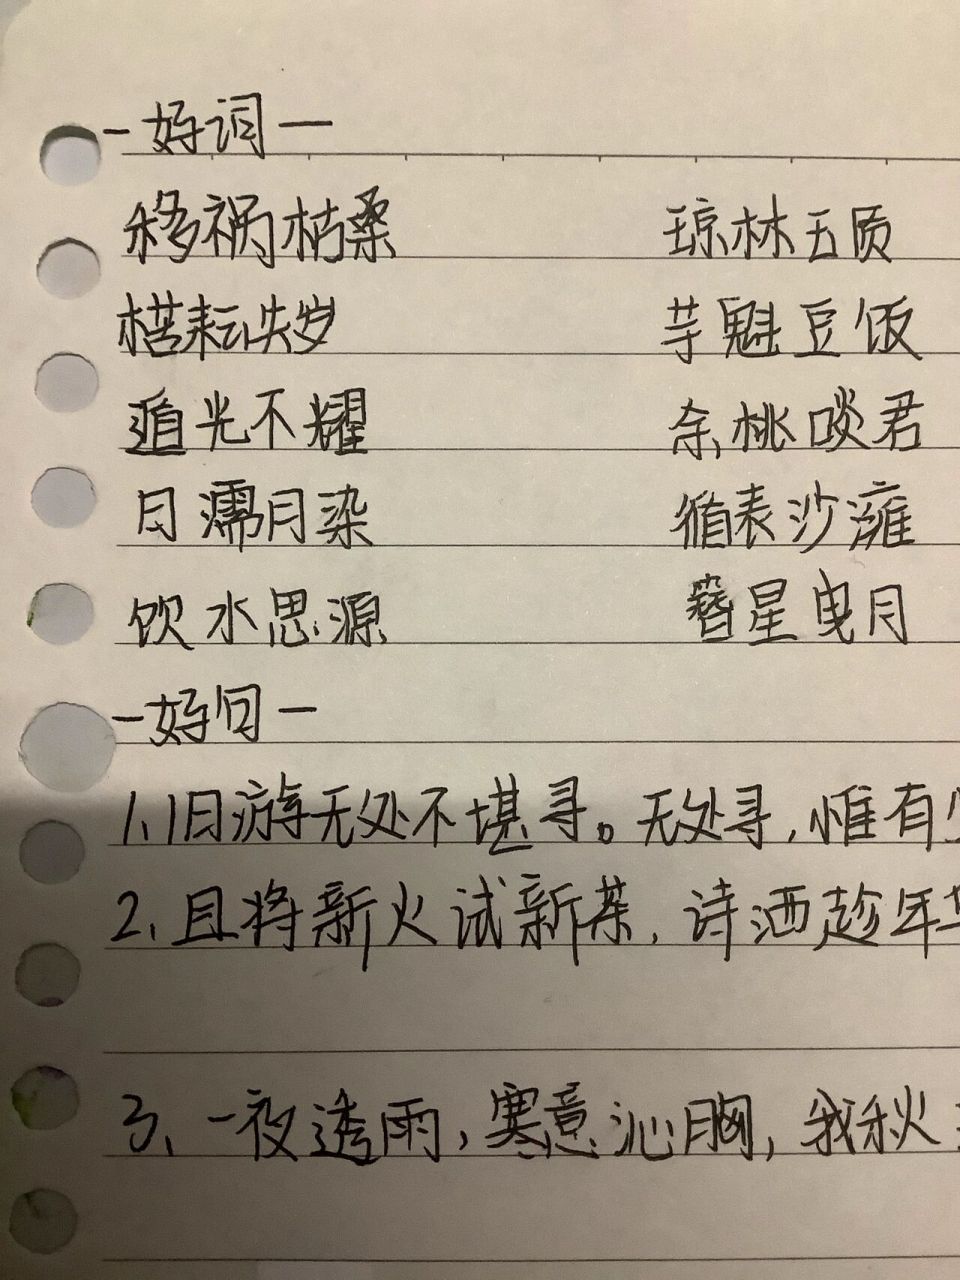 -好词一
移祸枯桑 琼林玉质
楛耘失岁 芋魁豆饭
追光不耀 余桃啖君
日濡月染 循表沙澭
饮水思源 簪星曳月
-好句一
1.旧游无处不堪寻。无处寻,惟有少
2.且将新火试新茶.诗酒趁年华
3、一夜透雨,寒意沁胸,我秋